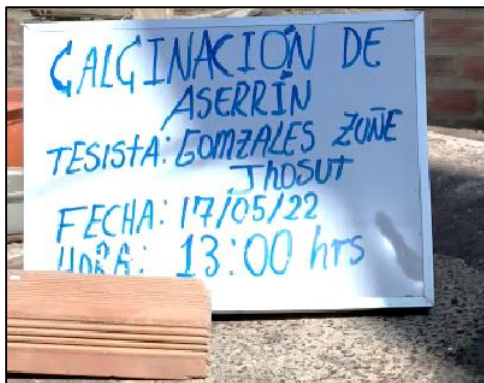 CALCINACIÓN DE
ASERRÍN
TESISTA: GOMZALES ZUÑE
JHOSUT
FECHA: 17/05/22
HORA: 13:00 hrs